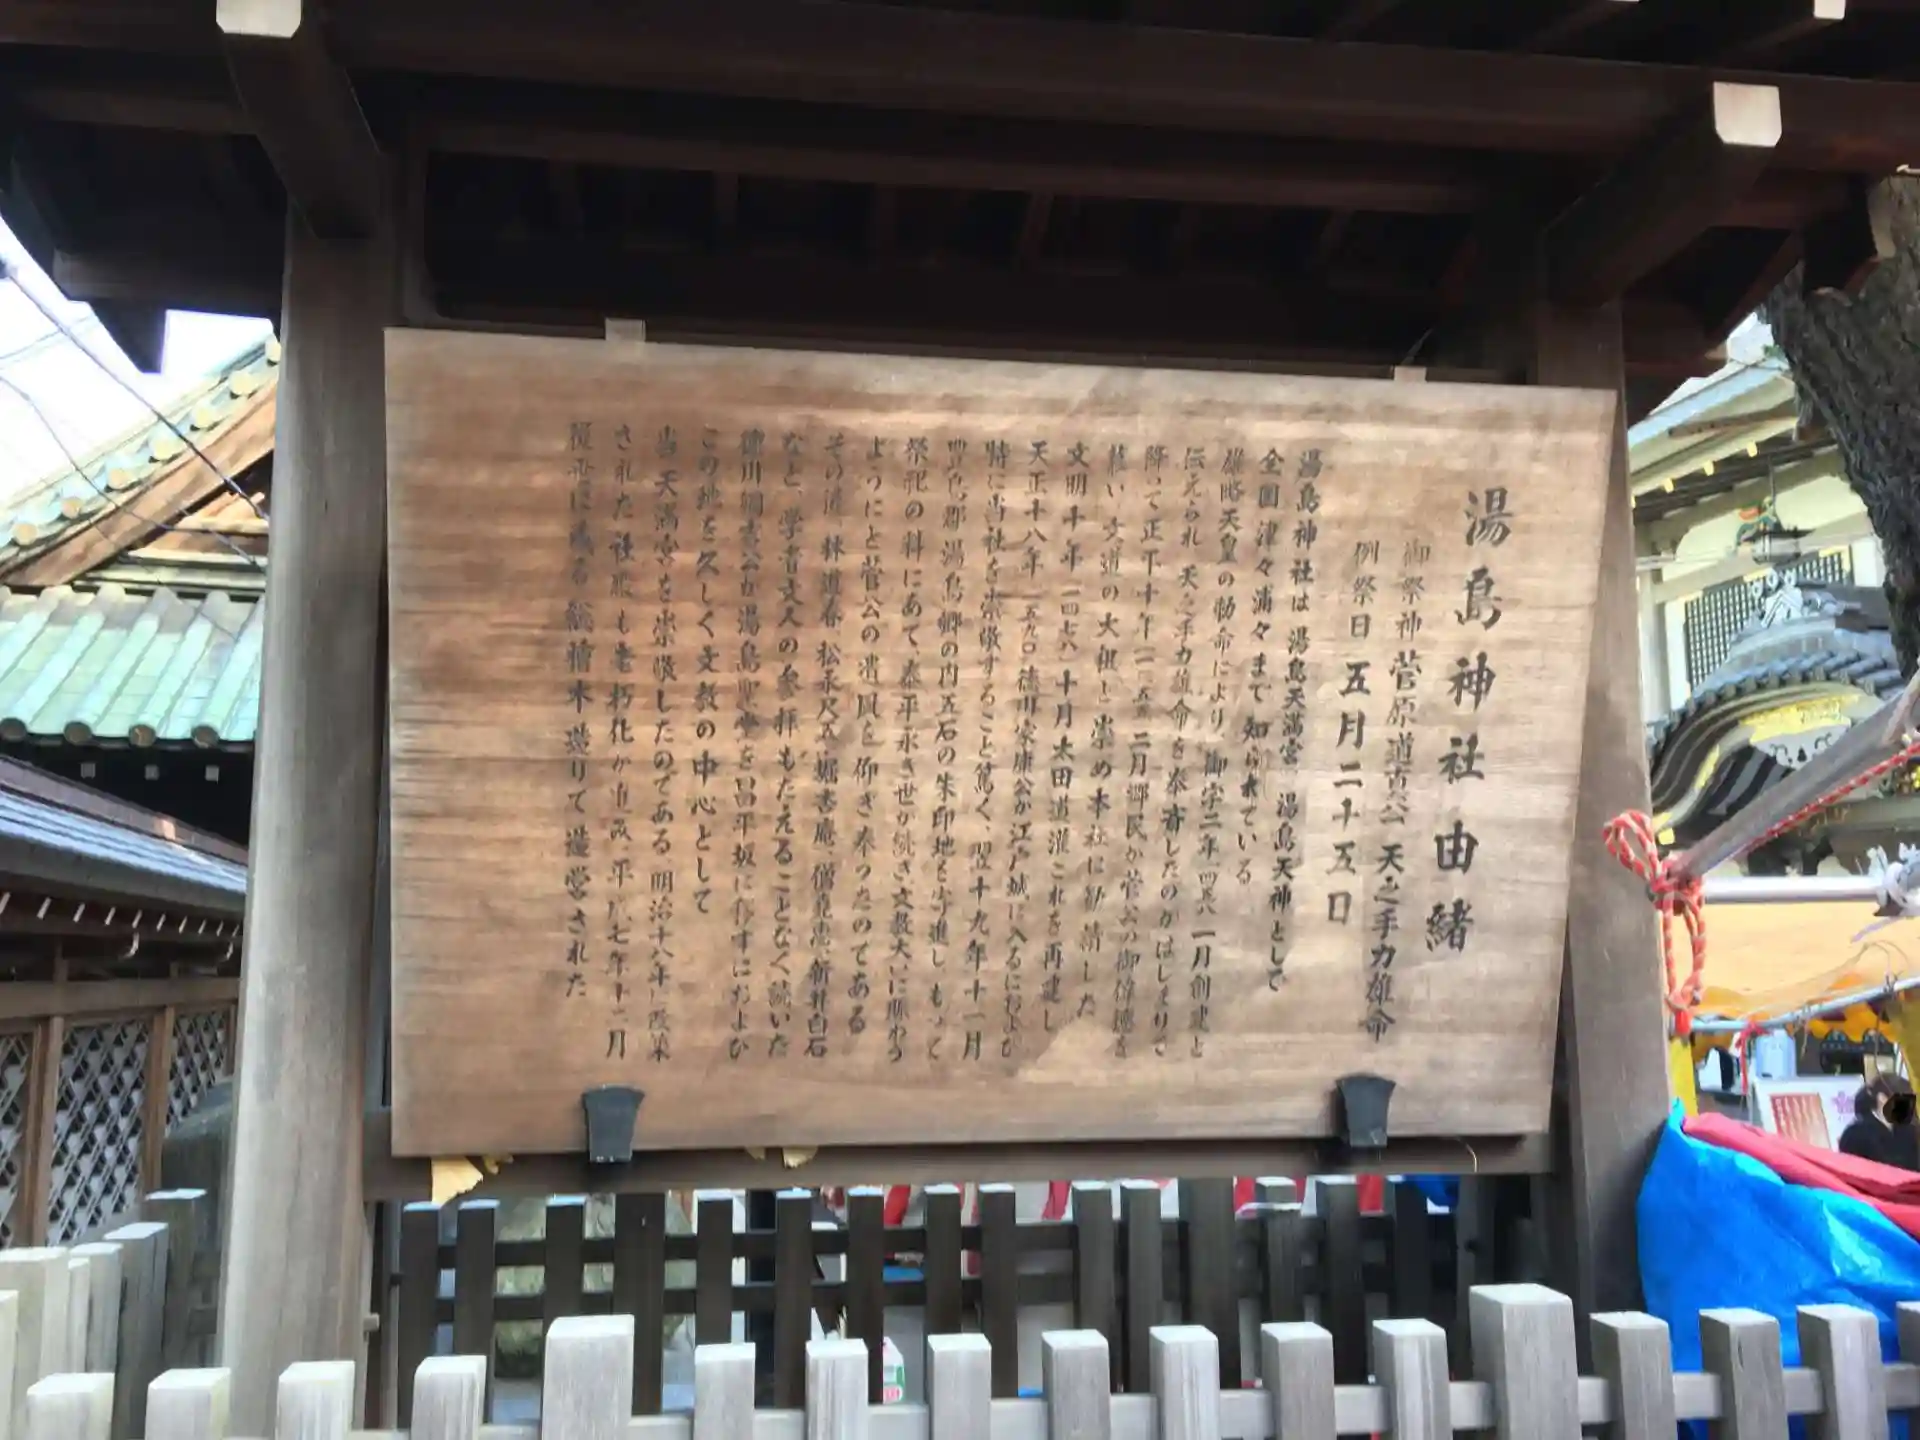 湯島神社由緒
御祭神 菅原道真公 天之手力雄命
例祭日 五月二十五日
湯島神社は 湯島天満宮 湯島天神として
全国津々浦々まで知られている
雄略天皇の勅命により 御宇二年 四五八 一月創建と
伝えられ 天之手力雄命を奉斎したのがはじまりで
降って正平十年 一三五五 二月郷民が菅公の御偉徳を
慕い 文道の大祖と崇め本社に勧請した
文明十年 一四七八 十月太田道灌これを再建し
天正十八年 一五九〇 徳川家康公が江戸城に入るにおよび
特に当社を崇敬すること篤く、翌十九年十一月
豊島郡湯島郷の内五石の朱印地を寄進し もって
祭祀の料にあて、泰平永き世が続き、文教大いに賑わう
ようにと菅公の遺風を仰ぎ奉ったのである
その後、林道春、松永尺五、堀杏庵、僧堯恵、新井白石
など、学者文人の参拝もたえることなく続いた
徳川綱吉公が湯島聖堂を昌平坂に移すにおよび
この地を久しく文教の中心として
当天満宮を崇敬したのである 明治十八年に改築
された社殿も老朽化が進み、平成七年十二月
後世に残る総檜木造りで造営された